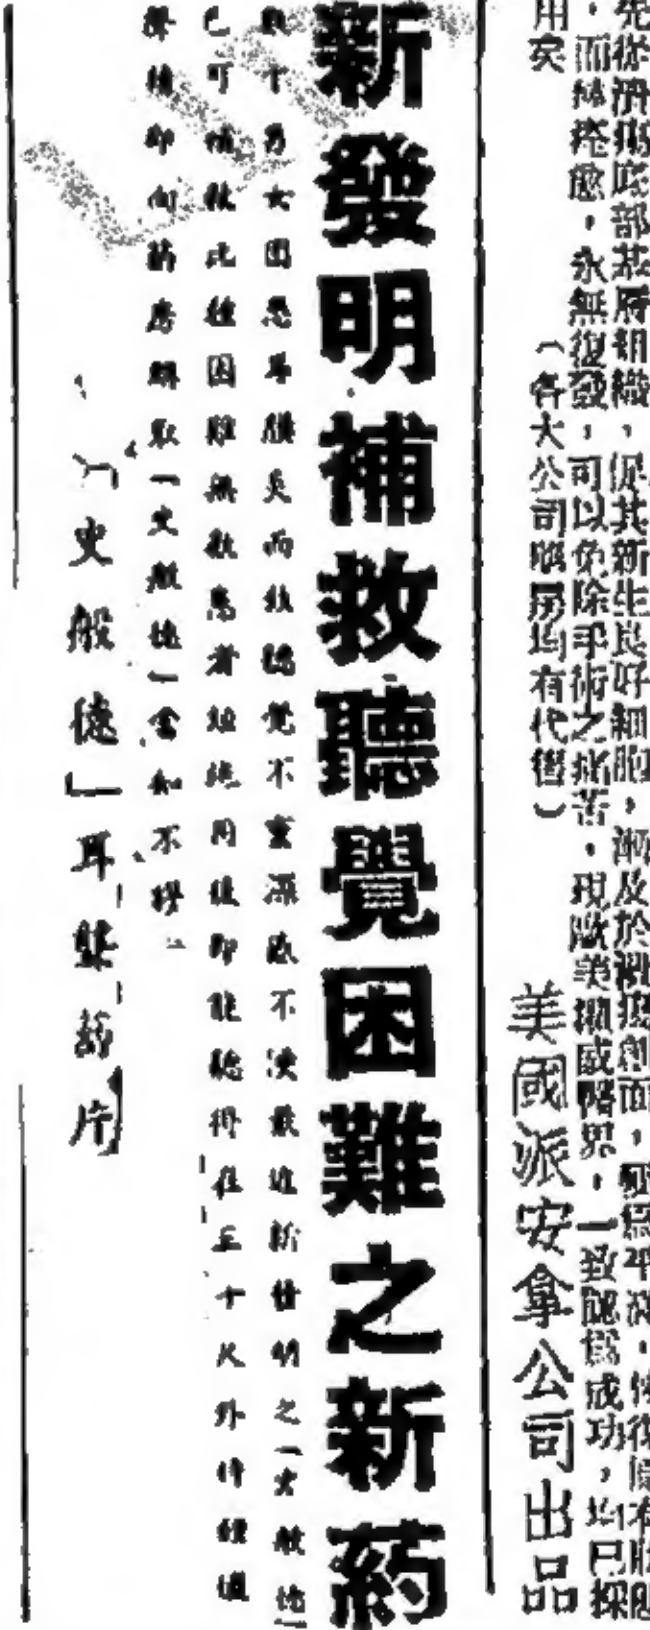 先從潰瘍底部基層組織，促其新生良好細胞，漸及於潰瘍創面，
，而林痊愈，永無復發，可以免除手術之痛苦，現歐美國威醫界，一致認為成功，均已採
用矣
（各大公司藥房均有代售）
美國派安拿公司出品
新發明補救聽覺困難之新葯
數千男女因患耳膜炎而致聽覺不靈深感不便最近新發明之「史般德」
已可補救此種困難無數患者照此用後即能聽得在三十尺外時鐘
即向葯房購取「史般德」當知不謬
「史般德」耳聾葯片